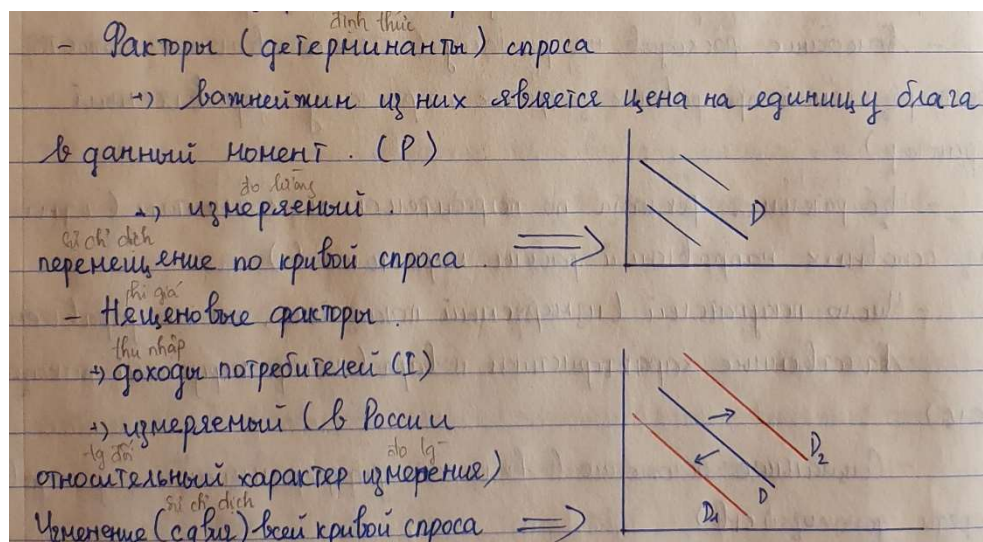 định thức
- Факторы (детерминанты) спроса
→ важнейжин из них является цена на единицу блага
в данный момент. (P)
đo lường
→ измеряемый.
sự chỉ dịch
перемещение по кривой спроса
D
phi giá
- Неценовые факторы.
thu nhập
→ доходы потребителей (I)
→ измеряемый (в России
-tg đối
đo lg
относительный характер измерения)
sự chỉ dịch
Изменение (сдвиг) всей кривой спроса
D₂
D
D₁